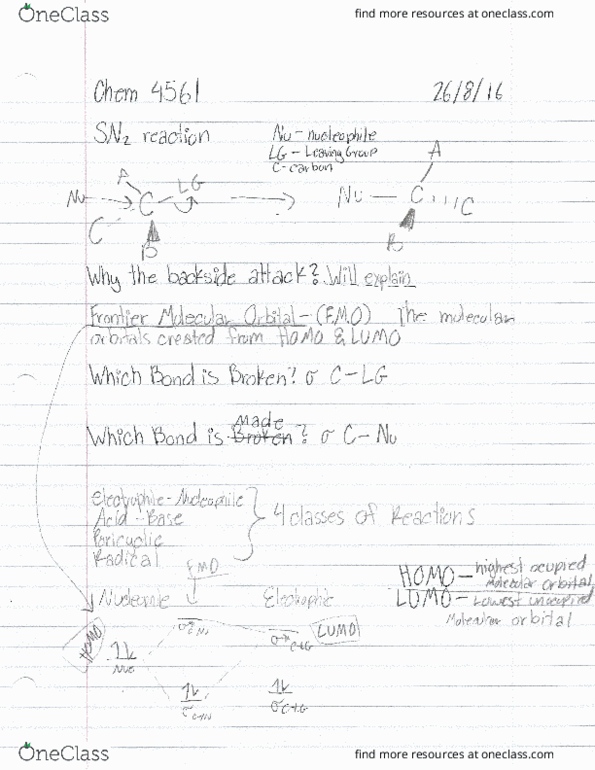 OneClass find more resources at oneclass.com
Chem 4561 26/8/16
SN2 reaction
Nu - nucleophile
LG - Leaving Group
C - carbon
A LG
Nu C
C
B
A
Nu — C C
B
Why the backside attack? Will explain
Frontier Molecular Orbital - (FMO) The molecular
orbitals created from HOMO & LUMO
Which Bond is Broken? σ C-LG
Made
Which Bond is Broken? σ C-Nu
Electrophile-Nucleophile
Acid - Base
Pericyclic
Radical
4 classes of Reactions
FMO
HOMO - highest ocupied
Molecular orbital
LUMO - Lowest unocupied
orbital
Electrophile
HOMO
LUMO
Nuc
OneClass find more resources at oneclass.com